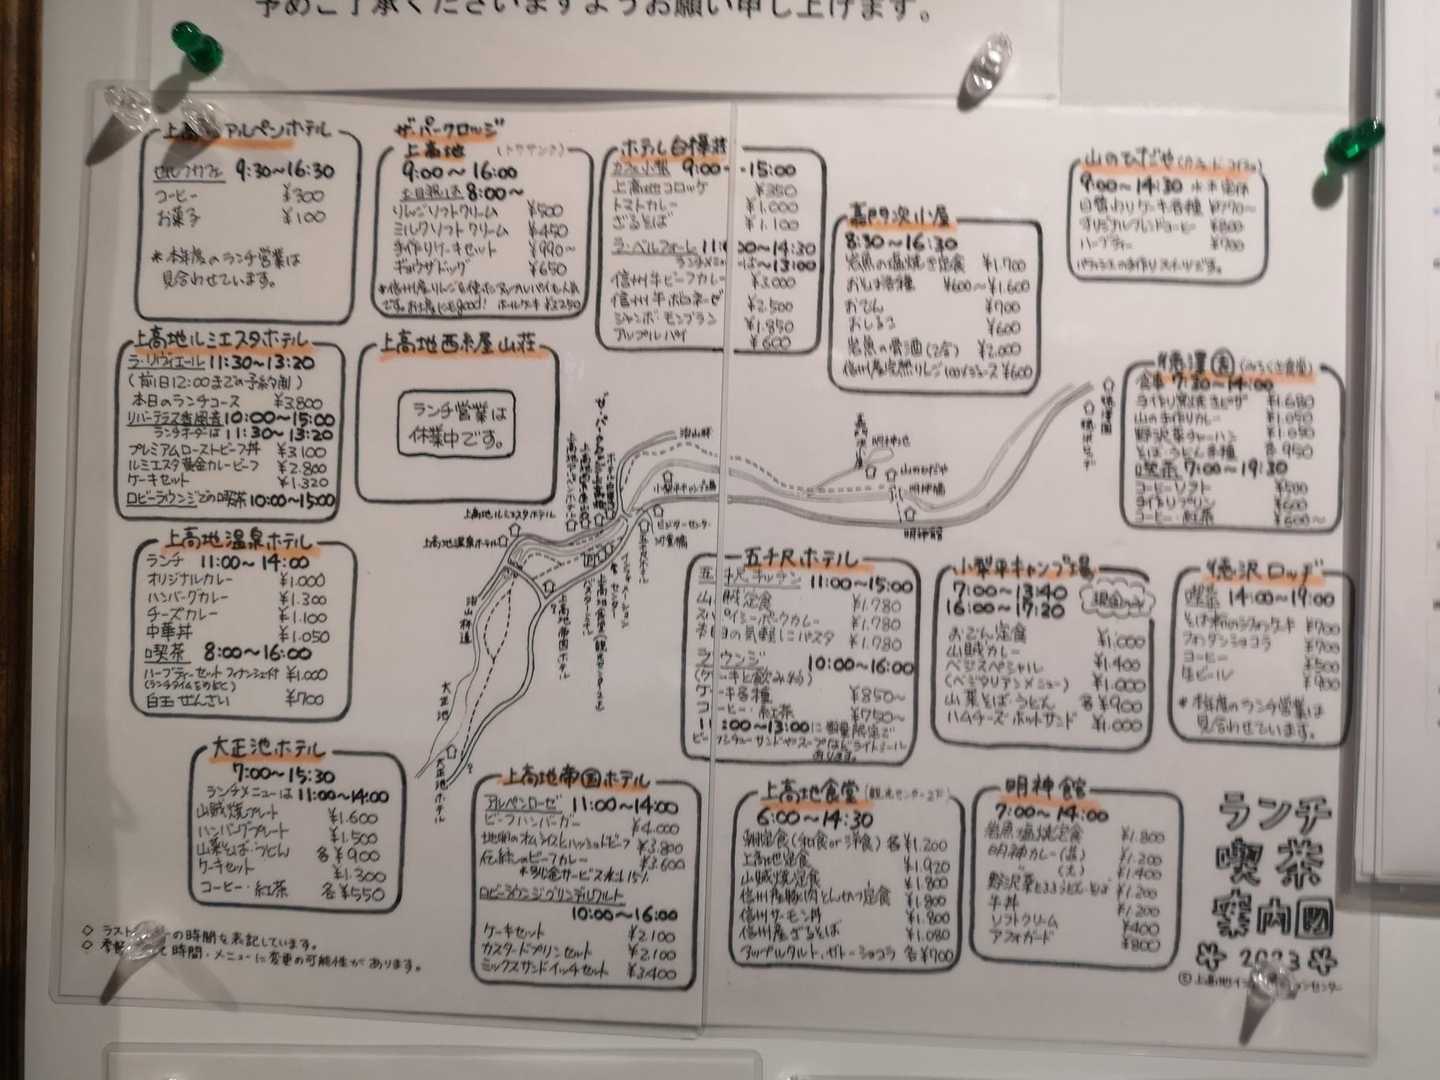 予めご了承くださいますようお願い申し上げます。
アルペンホテル
9:30～16:30
コーヒー ¥300
お菓子 ¥100
＊本年度のランチ営業は
見合わせています。
ザ・パークロッジ
上高地
9:00～16:00
8:00～
りんごソフトクリーム ¥500
ミルクソフトクリーム ¥450
手作りケーキセット ¥990～
ギョウザドッグ ¥650
ホテル白樺荘
カフェ小梨 9:00 -15:00
上高地コロッケ ¥350
トマトカレー ¥1,000
ざるそば ¥1,100
ラ・ベルフォーレ 11: ～14:30
～13:00
信州牛ビーフカレー ¥3,000
信州牛ボロネーゼ ¥2,500
ジャンボ・モンブラン ¥1,850
アップルパイ ¥600
嘉門次小屋
8:30～16:30
岩魚の塩焼き定食 ¥1,700
おそば各種 ¥600～¥1,600
おでん ¥700
おしるこ ¥600
岩魚の骨酒(2合) ¥2,000
信州産完熟りんご100%ジュース ¥600
山のひだや
9:00～14:30 水木定休
日替わりケーキ各種
オリジナルブレンドコーヒー
ハーブティー ¥700
上高地ルミエスタホテル
ラ・リヴィエール 11:30～13:20
(前日12:00までの予約制)
本日のランチコース ¥3,800
10:00～15:00
ランチオーダーは 11:30～13:20
プレミアムローストビーフ丼 ¥3,100
ルミエスタ黄金カレービーフ ¥2,800
ケーキセット ¥1,320
ロビーラウンジでの喫茶 10:00～15:00
上高地西糸屋山荘
ランチ営業は
休業中です。
徳澤園 (みちくさ食堂)
食事 7:30～14:00
手作り窯焼きピザ ¥1,680
山の手作りカレー ¥1,050
野沢菜チャーハン ¥1,050
そば・うどん各種 各950
喫茶 7:00～19:30
コーヒーソフト ¥500
手作りプリン ¥600
コーヒー・紅茶 ¥600～
上高地温泉ホテル
ランチ 11:00～14:00
オリジナルカレー ¥1,000
ハンバーグカレー ¥1,300
チーズカレー ¥1,100
中華丼 ¥1,050
喫茶 8:00～16:00
ハーブティーセット フィナンシェ付 ¥1,000
(ランチタイムをのぞく)
白玉ぜんざい ¥700
上高地ルミエスタホテル
上高地温泉ホテル
治山林道
大正池
大正池ホテル
上高地帝国ホテル
小梨平キャンプ場
ビジターセンター
河童橋
五千尺ホテル
インフォメーションセンター
バスターミナル
明神池
嘉門次小屋
山のひだや
明神橋
明神館
徳澤園
徳沢ロッヂ
五千尺ホテル
五 尺キッチン 11:00～15:00
山賊定食 ¥1,780
スパイシーポークカレー ¥1,780
本日の気軽にパスタ ¥1,780
ラウンジ 10:00～16:00
(ケーキと飲み物)
ケーキ各種 ¥850～
コーヒー・紅茶 ¥750～
11:00～13:00に数量限定で
ビーフシチューサンドやスープなどライトミール
あります。
小梨平キャンプ場
7:00～13:40
16:00～17:20
現金のみ
おでん定食 ¥1,000
山賊カレー ¥1,400
ベジスペシャル
(ベジタリアンメニュー) ¥1,000
山菜そば・うどん 各¥900
ハムチーズ・ホットサンド ¥1,000
徳沢ロッヂ
喫茶 14:00～19:00
そば粉のシフォンケーキ ¥700
フォンダンショコラ ¥700
コーヒー ¥500
生ビール ¥900
＊本年度のランチ営業は
見合わせています。
大正池ホテル
7:00～15:30
ランチメニューは 11:00～14:00
山賊焼プレート ¥1,600
ハンバーグプレート ¥1,500
山菜そば・うどん 各¥900
ケーキセット ¥1,300
コーヒー・紅茶 各¥550
上高地帝国ホテル
アルペンローゼ 11:00～14:00
ビーフハンバーガー ¥4,000
地卵のオムライスとハッシュドビーフ ¥3,800
伝統のビーフカレー ¥3,600
＊別途サービス料15%
ロビーラウンジ グリンデルワルト
10:00～16:00
ケーキセット ¥2,100
カスタードプリンセット ¥2,100
ミックスサンドイッチセット ¥3,400
上高地食堂 (観光センター2F)
6:00～14:30
朝定食(和食or洋食) 各¥1,200
上高地定食 ¥1,920
山賊焼定食 ¥1,800
信州産豚肉とんかつ定食 ¥1,800
信州サーモン丼 ¥1,800
信州産ざるそば ¥1,080
アップルタルト、ガトーショコラ 各¥700
明神館
7:00～14:00
岩魚塩焼定食 ¥1,800
明神カレー(並) ¥1,200
(大) ¥1,400
野沢菜とろろうどん・そば ¥1,200
牛丼 ¥1,200
ソフトクリーム ¥400
アフォガード ¥800
ランチ
喫茶
案内図
2023
◇ の時間を表記しています。
◇ 時間・メニューに変更の可能性があります。